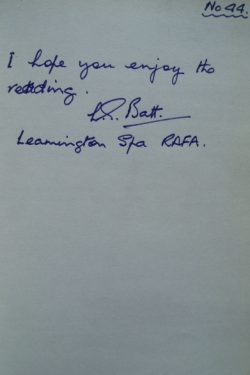 No 44.
I hope you enjoy the
reading.
L.R. Batt.
Leamington Spa RAFA.